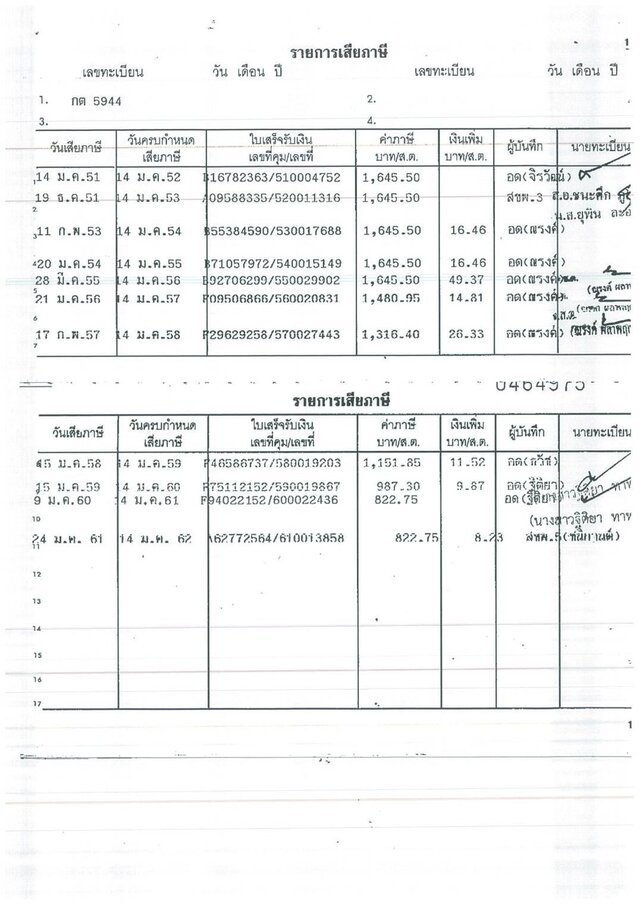 1
รายการเสียภาษี
เลขทะเบียน วัน เดือน ปี เลขทะเบียน วัน เดือน ปี
1. กต 5944 2.
3. 4.
วันเสียภาษี วันครบกำหนดเสียภาษี ใบเสร็จรับเงิน เลขที่คุม/เลขที่ ค่าภาษี บาท/ส.ต. เงินเพิ่ม บาท/ส.ต. ผู้บันทึก นายทะเบียน
14 ม.ค.51 14 ม.ค.52 16782363/510004752 1,645.50 อด(จิรวัฒน์)
19 ธ.ค.51 14 ม.ค.53 09588335/520011316 1,645.50 สขพ.3 ส.อ.ชนะศึก
2 น.ส.ยุพิน
3 11 ก.พ.53 14 ม.ค.54 55384590/530017688 1,645.50 16.46 อด(ณรงค์)
4 20 ม.ค.54 14 ม.ค.55 71057972/540015149 1,645.50 16.46 อด(ณรงค์)
5 28 มี.ค.55 14 ม.ค.56 92706299/550029902 1,645.50 49.37 อด(ณรงค์)
21 ม.ค.56 14 ม.ค.57 F09506866/560020831 1,480.95 14.81 อด(ณรงค์)
6 จ.ส.ต.
7 17 ก.พ.57 14 ม.ค.58 F29629258/570027443 1,316.40 26.33 อด(ณรงค์)
0464975
รายการเสียภาษี
วันเสียภาษี วันครบกำหนดเสียภาษี ใบเสร็จรับเงิน เลขที่คุม/เลขที่ ค่าภาษี บาท/ส.ต. เงินเพิ่ม บาท/ส.ต. ผู้บันทึก นายทะเบียน
15 ม.ค.58 14 ม.ค.59 F46586737/580019203 1,151.85 11.52
15 ม.ค.59 14 ม.ค.60 F75112152/590019867 987.30 9.87 อด(ฐิติยา)
9 ม.ค.60 14 ม.ค.61 F94022152/600022436 822.75
10 (นางสาวฐิติยา
11 24 ม.ค. 61 14 ม.ค. 62 62772564/610013858 822.75 8.23 สขพ.5
12
13
14
15
16
17
1